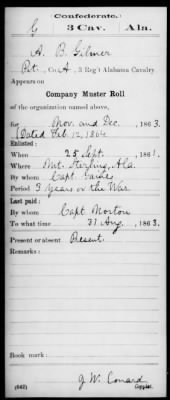 Confederate.
G 3 Cav. Ala.
A. B. Gilmer
Pvt., Co. A, 3 Reg't Alabama Cavalry
Appears on
Company Muster Roll
of the organization named above,
for Nov. and Dec., 1863.
(Dated Feb. 12, 1864
Enlisted:
When 25 Sept., 1861.
Where Mt. Sterling, Ala.
By whom Capt. Gaines
Period 3 years or the War
Last paid:
By whom Capt. Norton
To what time 31 Aug, 1863.
Present or absent Present.
Remarks:
Book mark:
(642) J. W. Conard
Copyist.